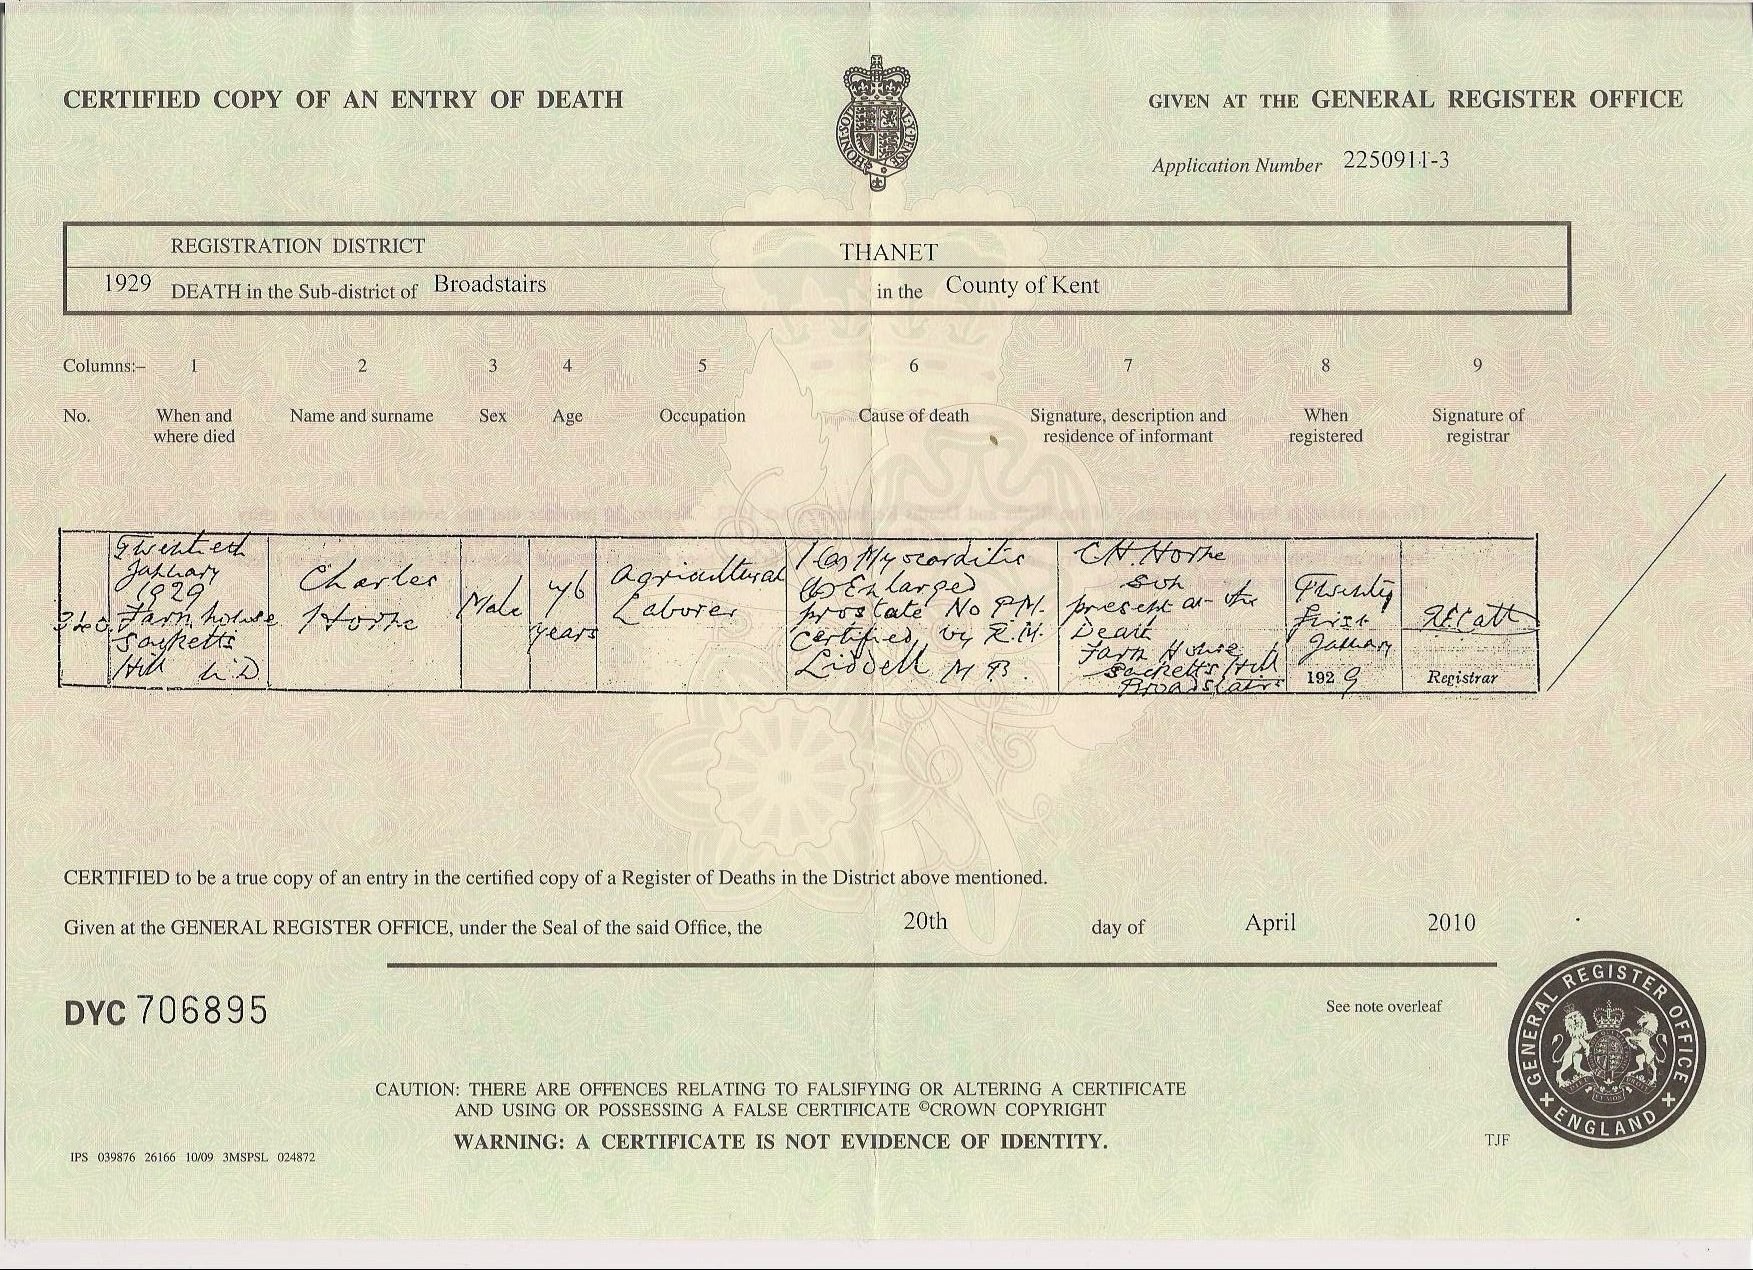 CERTIFIED COPY OF AN ENTRY OF DEATH
GIVEN AT THE GENERAL REGISTER OFFICE
HONI SOI MAL Y PENSE
Application Number 2250911-3
REGISTRATION DISTRICT THANET
1929 DEATH in the Sub-district of Broadstairs in the County of Kent
Columns:– 1 2 3 4 5 6 7 8 9
No. When and where died Name and surname Sex Age Occupation Cause of death Signature, description and residence of informant When registered Signature of registrar
340
Twentieth
January
1929
Farm house
Sacketts
Hill U.D
Charles
Horne
Male
76
years
Agricultural
Laborer
1 (a) Myocarditis
(b) Enlarged
prostate No P.M.
Certified by R.M.
Liddell M B.
C H. Horne
Son
present at the
Death
Farm House
Sacketts Hill
Broadstairs
Twenty
first
January
1929
Registrar
CERTIFIED to be a true copy of an entry in the certified copy of a Register of Deaths in the District above mentioned.
Given at the GENERAL REGISTER OFFICE, under the Seal of the said Office, the 20th day of April 2010
DYC 706895
See note overleaf
GENERAL REGISTER OFFICE
ENGLAND
CAUTION: THERE ARE OFFENCES RELATING TO FALSIFYING OR ALTERING A CERTIFICATE
AND USING OR POSSESSING A FALSE CERTIFICATE ©CROWN COPYRIGHT
WARNING: A CERTIFICATE IS NOT EVIDENCE OF IDENTITY.
TJF
IPS 039876 26166 10/09 3MSPSL 024872